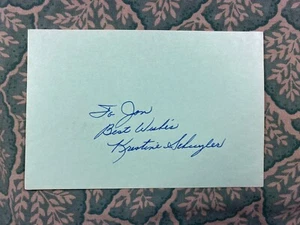 To Jon
Best Wishes
Kristine Schuyler